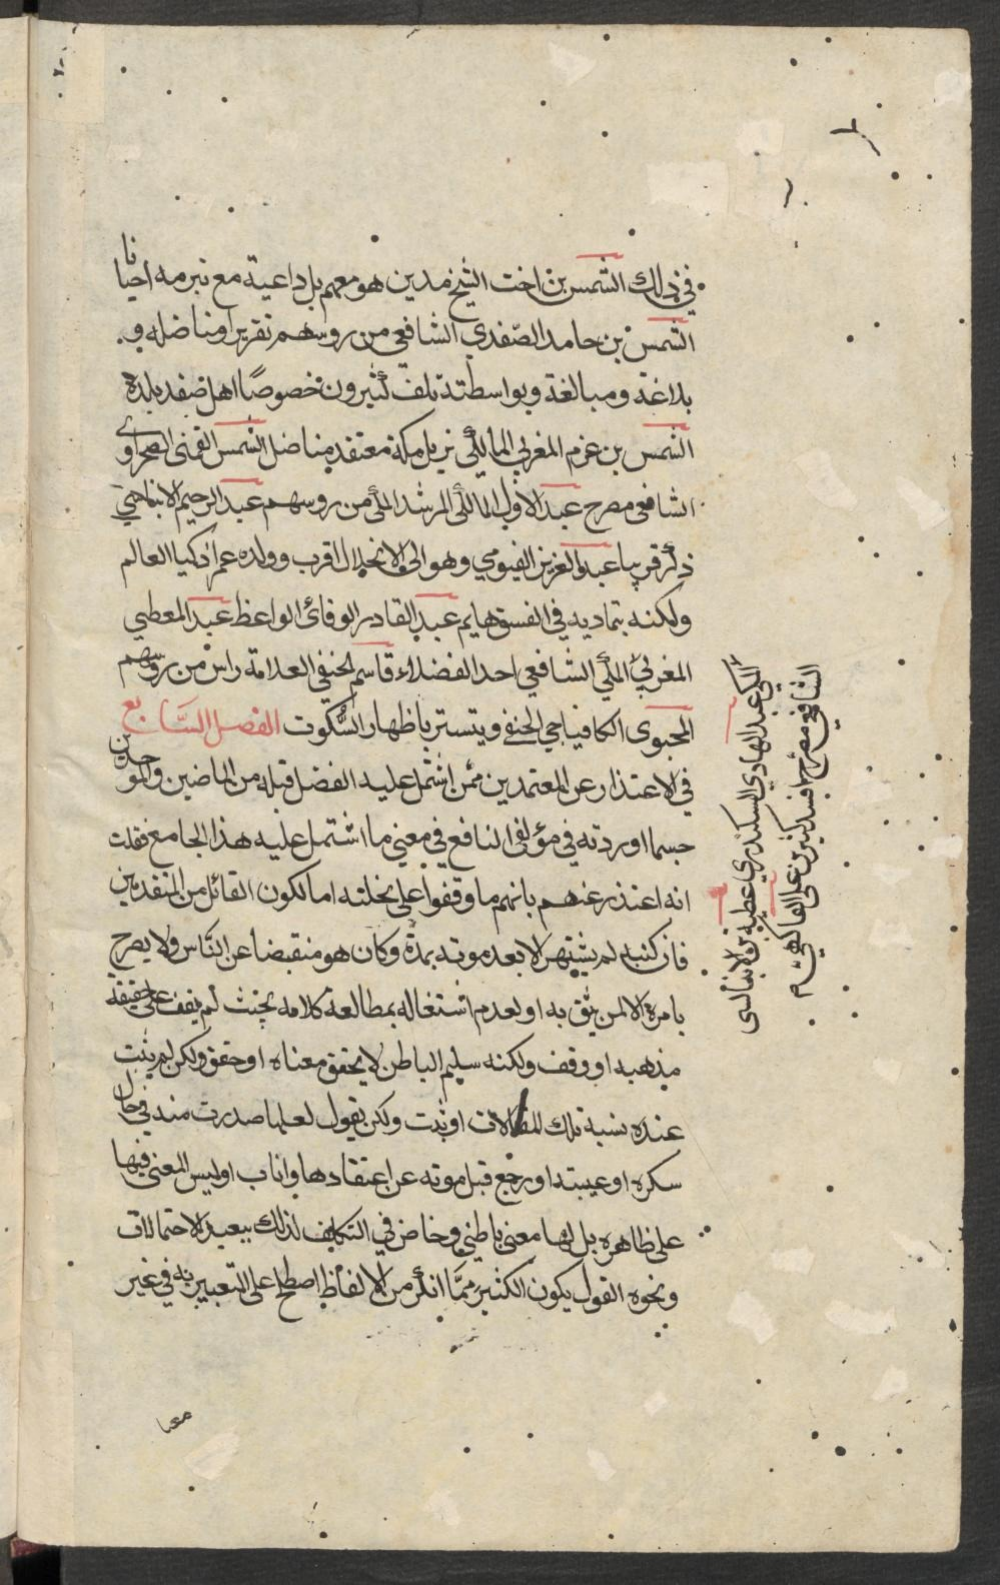 في ذلك الشمس بن اخت الشيخ مدين هو معهم بل داعية مع تبرمه احيانا
الشمس بن حامد الصفدي الشافعي من روسهم تقريرا ومناضله و
بلاغة ومبالغة وبواسطته تلف كثيرون خصوصًا اهل صفد بلده
الشمس بن عزم المغربي المالكي نزيل مكة معتقد مناضل الشمس القمني الصحراوي
الشافعي مصرح عبد الاول المالكي المرشد المكي من روسهم عبد الرحيم الابناسي
ذكر قريبا عبد العزيز الفيومي وهو الى الانحلال اقرب وولده عمر اذكيا العالم
ولكنه بتماديه في الفسق هايم عبد القادر الوفائى الواعظ عبد المعطي
المغربي المكي الشافعي احد الفضلاء قاسم الحنفي العلامة راس من روسهم
المحيوى الكافياجي الحنفي ويتستر باظهار السُّكوت الفصل السَّابع
في الاعتذار عن المعتمدين ممن اشتمل عليه الفضل قبله من الماضين والموجودين
حسما اوردته في مؤلفى النافع في معنى ما اشتمل عليه هذا الجامع فقلت
انه اعتذر عنهم بانهم ما وقفوا على نحلته اما لكون القائل من المتقدمين
فان كتبه لم يشتهر الا بعد موته بمدة وكان هو منقبضا عن الناس ولا يصرح
بامره الا لمن يثق به او لعدم اشتغاله بمطالعة كلامه بحيث لم يقف على حقيقة
مذهبه او وقف ولكنه سليم الباطن لا يحقق معناه او حقق ولكن لم يثبت
عنده نسبة تلك المقالات او ثبت ولكن يقول لعلها صدرت منه في حال
سكره او غيبته او رجع قبل موته عن اعتقادها واناب او ليس المعنى فيها
على ظاهره بل لها معنى باطني وخاض في التكلف لذلك ببعيد الاحتمالات
ونحوه القول يكون الكثير ممَّا انكر من الالفاظ اصطلح على التعبير به في غير
المكي عبد الهادي السكندري عطية بن الابناسى
الشافعي مصرح افسد كثيرين على الفاكهي م